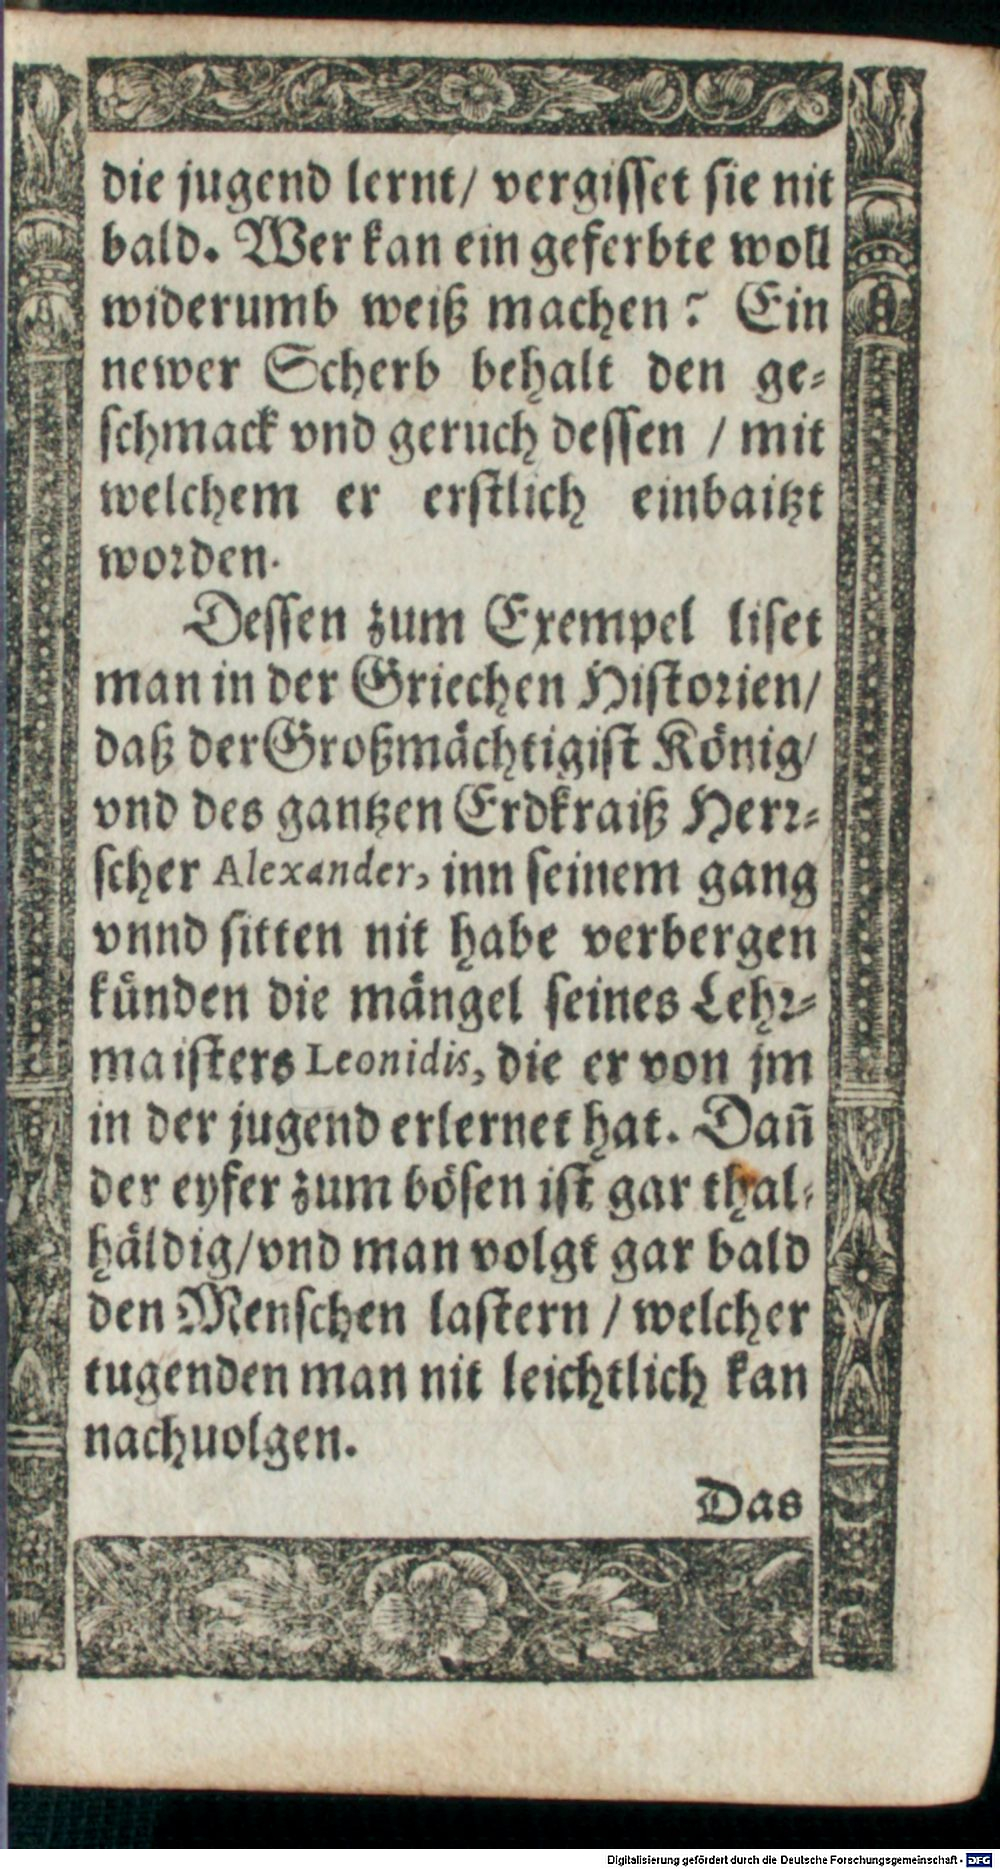 die jugend lernt/ vergisset sie nit
bald. Wer kan ein geferbte woll
widerumb weiß machen? Ein
newer Scherb behalt den ge-
schmack vnd geruch dessen / mit
welchem er erstlich einbaitzt
worden.
Dessen zum Exempel liset
man in der Griechen Historien/
daß der Großmächtigist König/
vnd des gantzen Erdkraiß Herr-
scher Alexander, inn seinem gang
vnnd sitten nit habe verbergen
künden die mängel seines Lehr-
maisters Leonidis, die er von jm
in der jugend erlernet hat. Dañ
der eyfer zum bösen ist gar thal-
häldig/vnd man volgt gar bald
den Menschen lastern / welcher
tugenden man nit leichtlich kan
nachuolgen.
Das
Digitalisierung gefördert durch die Deutsche Forschungsgemeinschaft - DFG